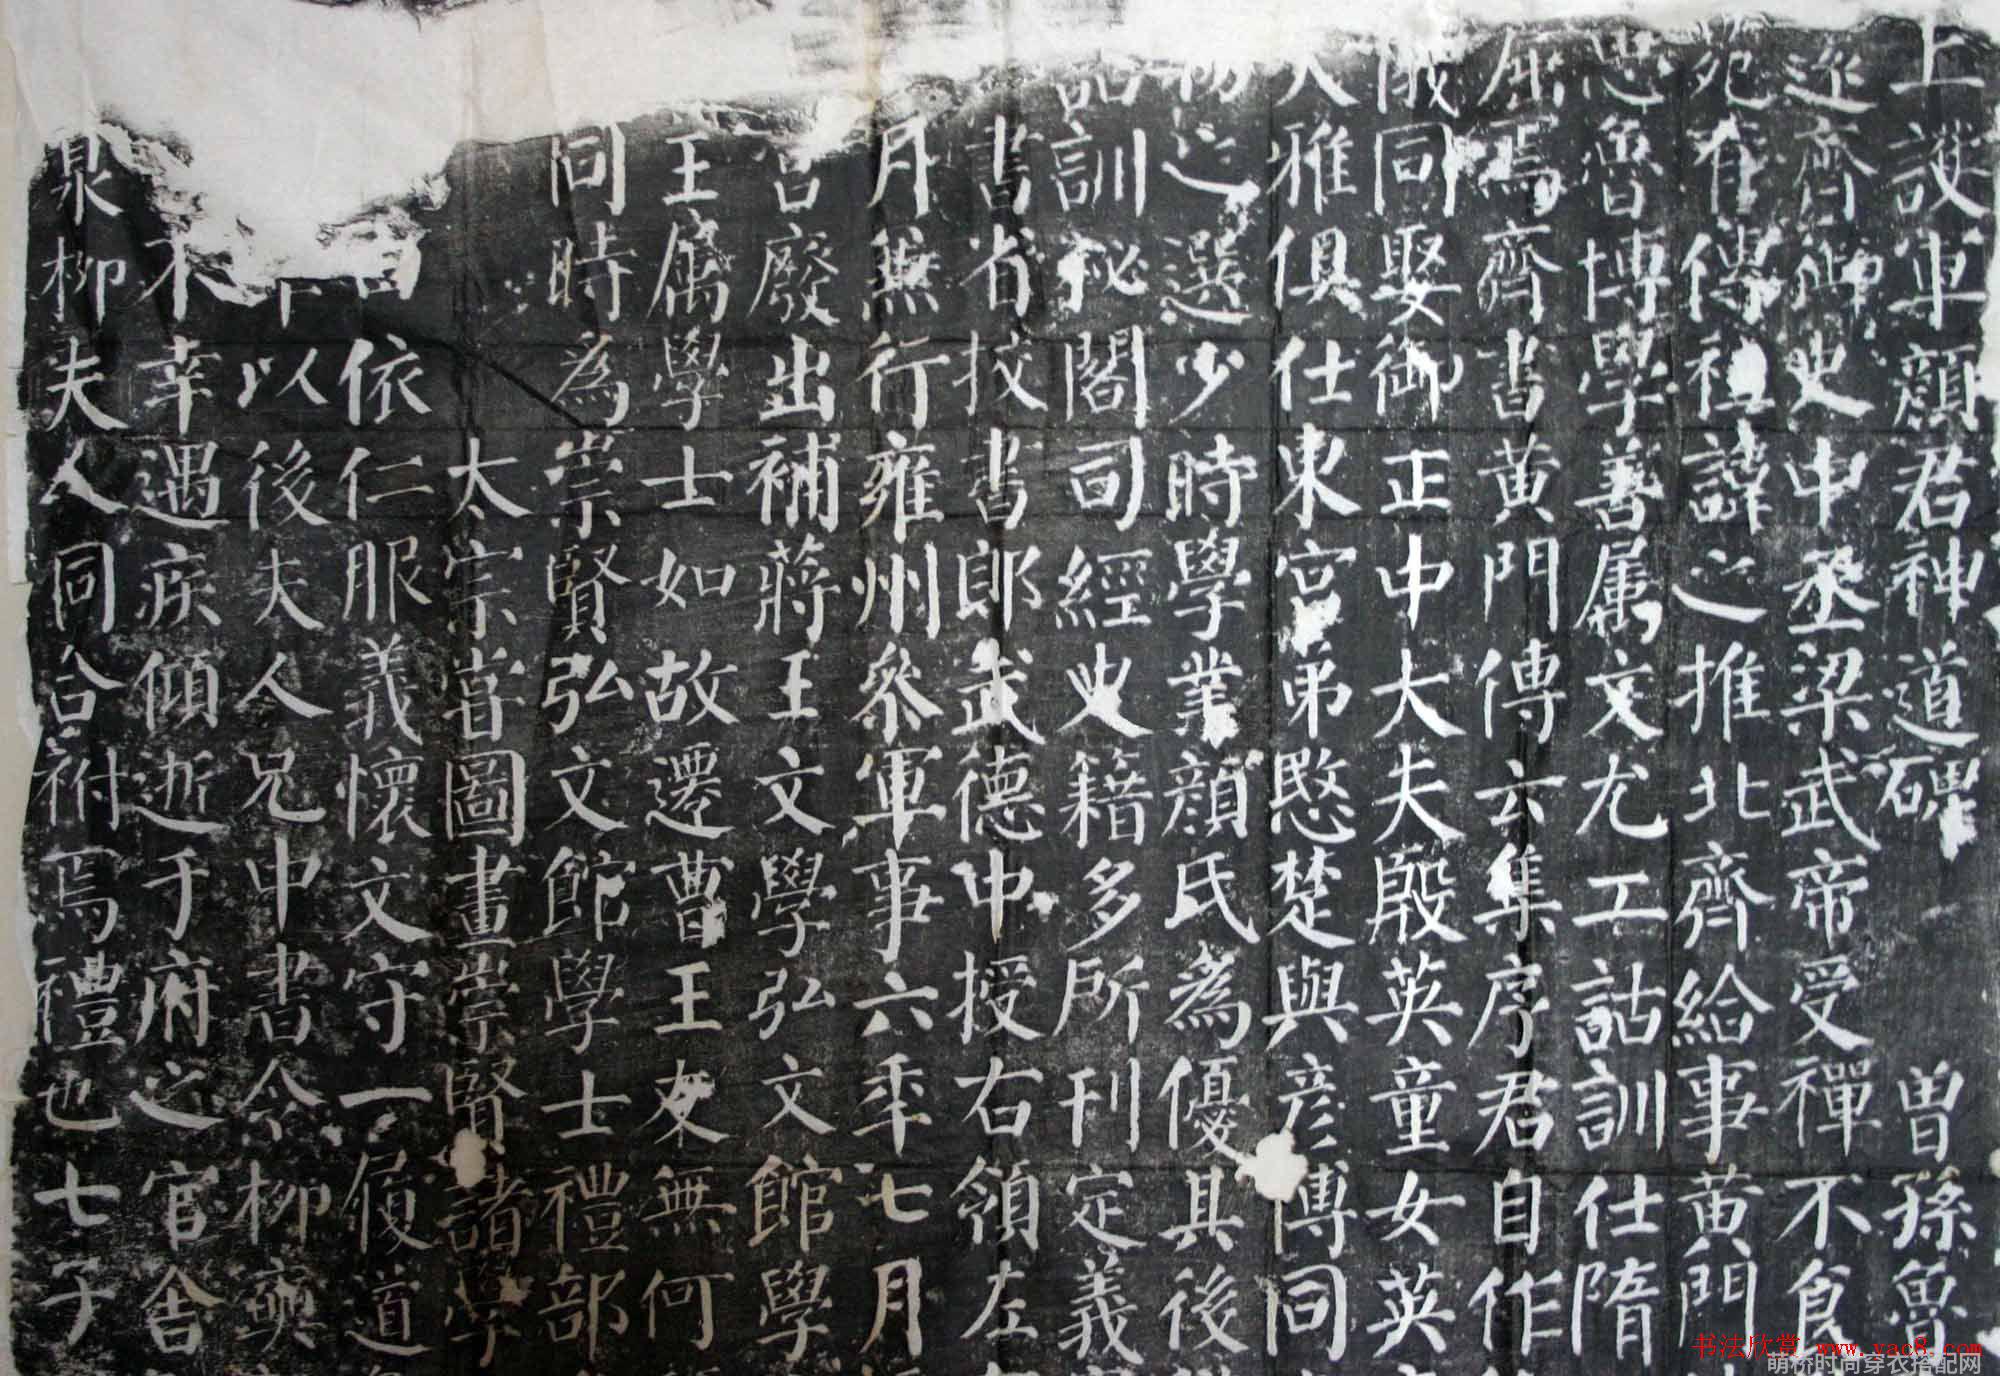 上護軍顏君神道碑 曾孫魯
逐齊御史中丞梁武帝受禪不食
宛有傳祖諱之推北齊給事黃門
思魯博學善屬文尤工詁訓仕隋
焉齊書黃門傳云集序君自作
同娶御正中大夫殷英童女英
人雅俱仕東宮弟愍楚與彥博同
之選少時學業顏氏為優其後
訓秘閣司經史籍多所刊定義
書省校書郎武德中授右領左
月無行雍州參軍事六年七月
宮廢出補蔣王文學弘文館學
王屬學士如故遷曹王友無何
同時為崇賢弘文館學士禮部
太宗嘗圖畫崇賢諸學
依仁服義懷文守一履道
以後夫人兄中書令柳奭
不幸遇疾傾逝于府之官舍
泉柳夫人同合祔焉禮也七子
书法欣赏 www.yac8.com
萌桥时尚穿衣搭配网